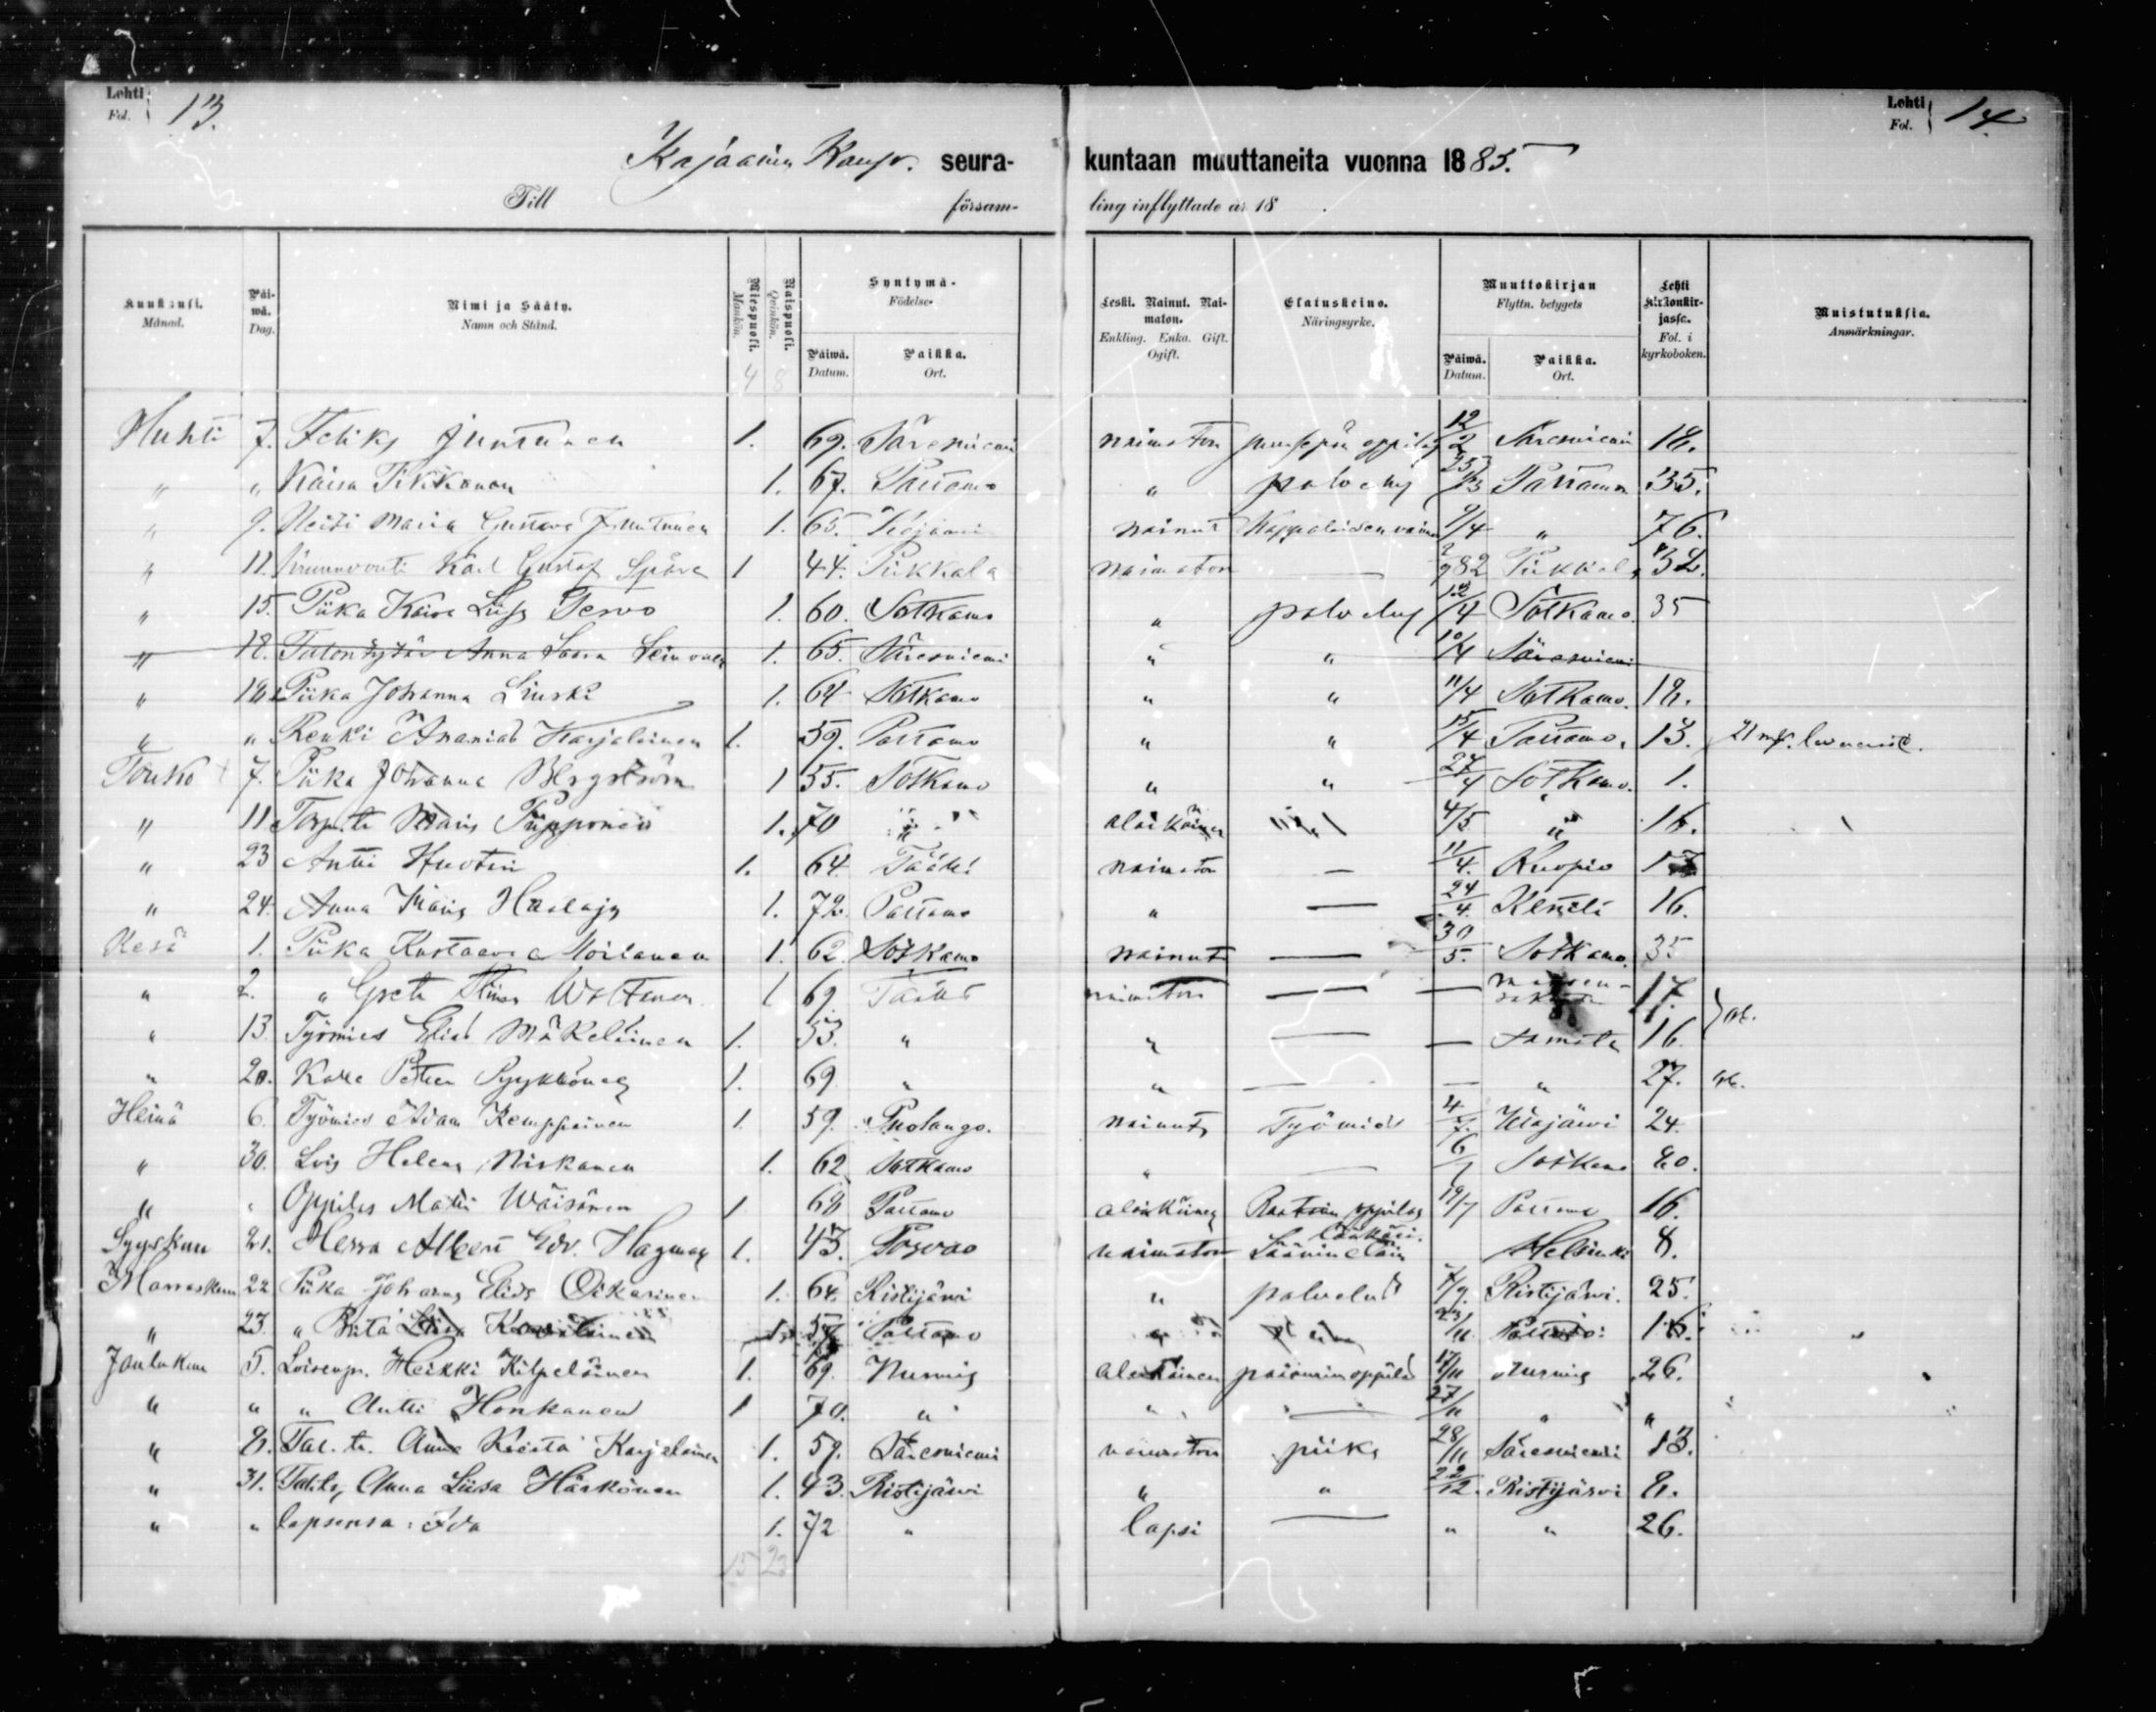 Lehti Fol. 13.
Lehti Fol. 14.
Kajaanin Kaup. seura- kuntaan muuttaneita vuonna 1885.
Till församling inflyttade år 18 .
Kuukausi. Månad. Päiwä. Dag. Nimi ja Sääty. Namn och Stånd. Miespuoli. Mankön. Naispuoli. Qvinkön. Syntymä- Födelse- Päiwä. Datum. Paikka. Ort. Leski. Nainut. Naimaton. Enkling. Enka. Gift. Ogift. Elatuskeino. Näringsyrke. Muuttokirjan Flyttn. betygets Päiwä. Datum. Paikka. Ort. Lehti Kirkonkirjassa. Fol. i kyrkoboken. Muistutuksia. Anmärkningar.
4 8
Huhti 7. Feliks Juntunen 1. 69. Säresniemi naimaton oppilas 12/2 Säresniemi 18.
" " Kaisa Tikkanen 1. 67. Paltamo " palvelus 25/3 Paltamo 35.
" 9. Neiti Maria Gustava Juntunen 1. 65. Kajaani nainut Kappalaisen vaimo 9/4 " 76.
" 11. Kruununvouti Karl Gustaf Späre 1 44. Pirkkala naimaton — 82 Pirkkala 32.
" 15. Piika Kaisa Liisa Tervo 1. 60. Sotkamo " palvelus 12/4 Sotkamo. 35
" 18. Talontytär Anna Leinonen 1. 65. Säresniemi " " 10/4 Säresniemi
" 18. Piika Johanna Linski 1. 64 Sotkamo " " 11/4 Sotkamo. 18.
" " Renki Ananias Karjalainen 1. 59. Paltamo " " 15/4 Paltamo. 13.
Touko 7. Piika Johanna Bergström 1 55. Sotkamo " " 27/4 Sotkamo. 1.
" 11 Maria Piipponen 1. 70 " alaikäinen 4/5 " 16.
" 23 Antti Huotari 1. 64. Täältä naimaton — 11/4. Kuopio
" 24. Anna Maria Haataja 1. 72. Paltamo " — 24/4. 16.
Kesä 1. Piika Kustaava Moilanen 1. 62. Sotkamo nainut — 30/5. Sotkamo. 35
" 2. " Greta Stina 1 69 Täältä naimaton — — 17.
" 13. Työmies Elias Mäkeläinen 1. 53. " " — — samoten 16.
" 20. Kalle Petter Pyykkönen 1. 69. " " — — " 27.
Heinä 6. Työmies Adam Kemppainen 1. 59. Puolango. nainut Työmies 4/7. Utajärvi 24.
" 30. Lovis Helena Niskanen 1. 62 Sotkamo " — Sotkamo 80.
" " Oppilas Matti Wäisänen 1 68 Paltamo alaikäinen oppilas 19/7 Paltamo 16.
Syyskuu 21. Herra Albert Edv. Hagman 1. 43. Porvoo naimaton Lääninelänlääkäri. Helsinki 8.
Marraskuu 22 Piika Johanna Elida Oikarinen 1. 64. Ristijärvi " palvelus 7/9. Ristijärvi. 25.
" 23. " Brita Liisa 57 Paltamo " 23/11 Paltamo 16.
Joulukuu 5. Heikki Kilpeläinen 1. 69. Nurmis alaikäinen oppilas 17/11 Nurmis 26.
" " " Antti Honkanen 1 70. " " — 27/11 " "
" 8. Tal. tr. Anna Kreeta Karjalainen 1. 59. Säresniemi naimaton piika 28/11 Säresniemi 13.
" 31. Anna Liisa Härkönen 1. 43. Ristijärvi " " 22/12. Ristijärvi 8.
" " lapsensa: Ida 1. 72 " lapsi — " " 26.
15 23